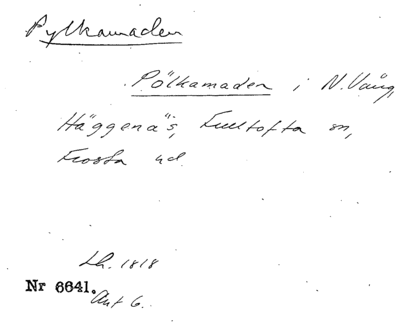 Pylkamaden
Pölkamaden i N. Vång,
Häggenäs, Fulltofta sn,
Frosta hd.
Lh. 1818
Nr 6641.
Akt 6.